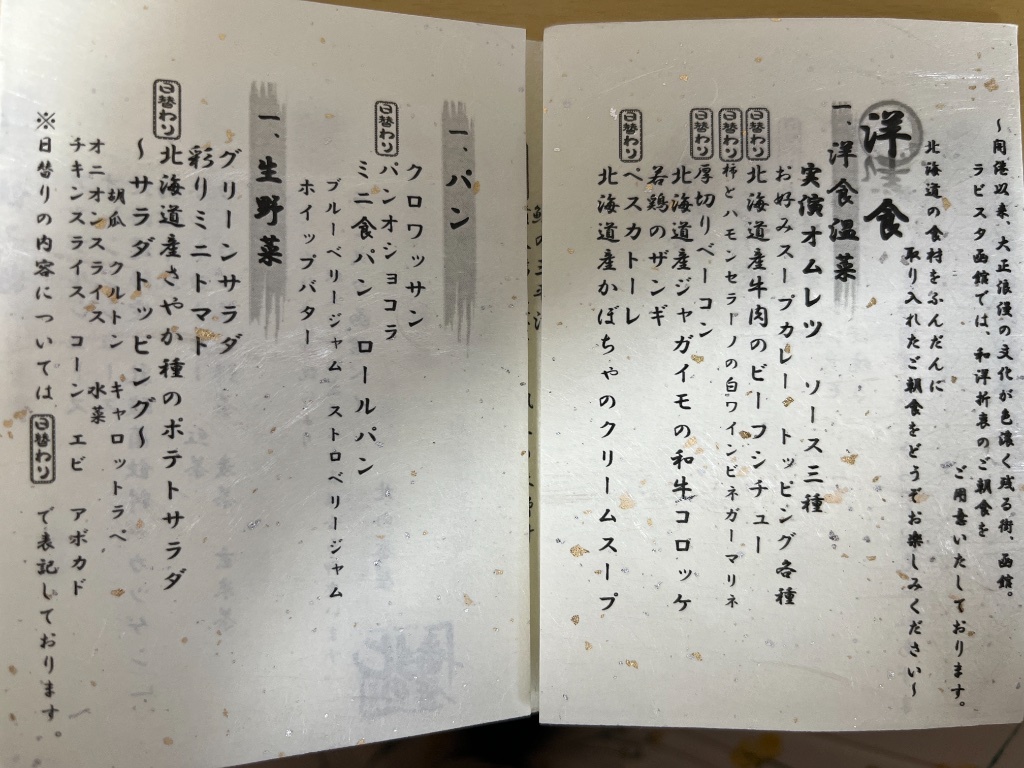 ～開港以来、大正浪漫の文化が色濃く残る街、函館。
ラビスタ函館では、和洋折衷のご朝食を
ご用意いたしております。
北海道の食材をふんだんに
取り入れたご朝食をどうぞお楽しみください～
洋食
一、洋食温菜
実演オムレツ ソース三種
お好みスープカレー トッピング各種
日替わり 北海道産牛肉のビーフシチュー
日替わり 柿とハモンセラーノの白ワインビネガーマリネ
日替わり 厚切りベーコン
北海道産ジャガイモの和牛コロッケ
若鶏のザンギ
日替わり ペスカトーレ
北海道産かぼちゃのクリームスープ
一、パン
クロワッサン
日替わり パンオショコラ
ミニ食パン ロールパン
ブルーベリージャム ストロベリージャム
ホイップバター
一、生野菜
グリーンサラダ
彩りミニトマト
日替わり 北海道産さやか種のポテトサラダ
～サラダトッピング～
胡瓜 クルトン キャロットラペ
オニオンスライス 水菜
チキンスライス コーン エビ アボカド
※日替りの内容については 日替わり で表記しております。